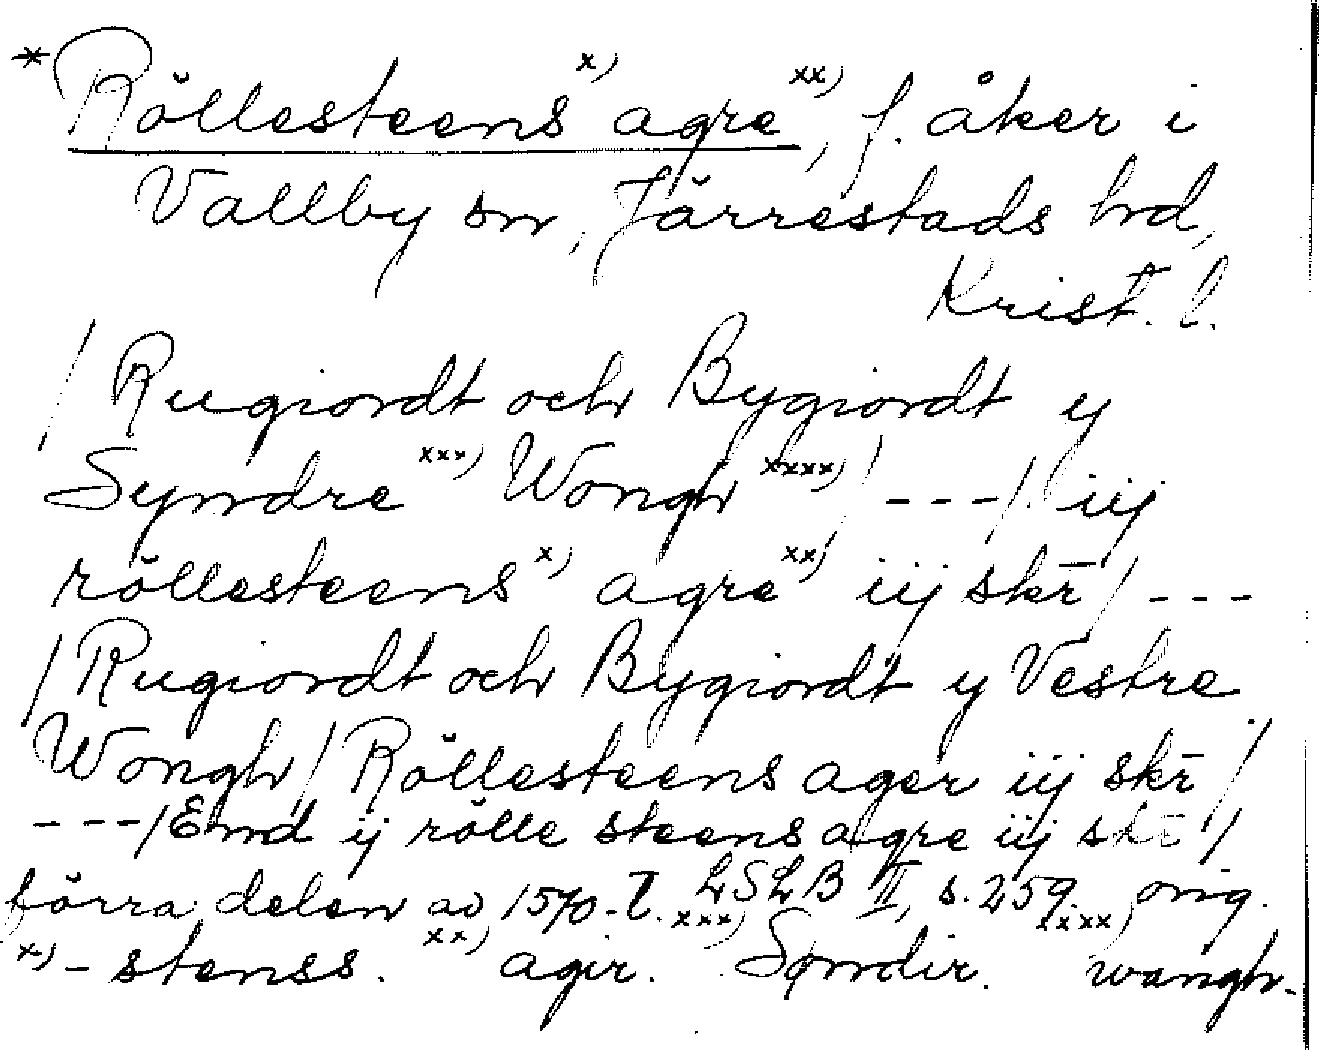 *Röllesteens x) agre xx), f. åker i
Vallby sn, Järrestads hd,
Krist. l.
/ Rugiordt och Bygiordt y
Syndre xxx) Wongh xxxx) / --- / iij
röllesteens x) agre xx) iij skr̄ / ---
/ Rugiordt och Bygiordt y Vestre
Wongh / Röllesteens ager iij skr̄ /
--- / End ij rölle steens agre iij skr̄ /
förra delen av 1570-t. LSLB II, s. 259. orig.
x) -stenss. xx) agir. xxx) Søndir. xxxx) wangh.